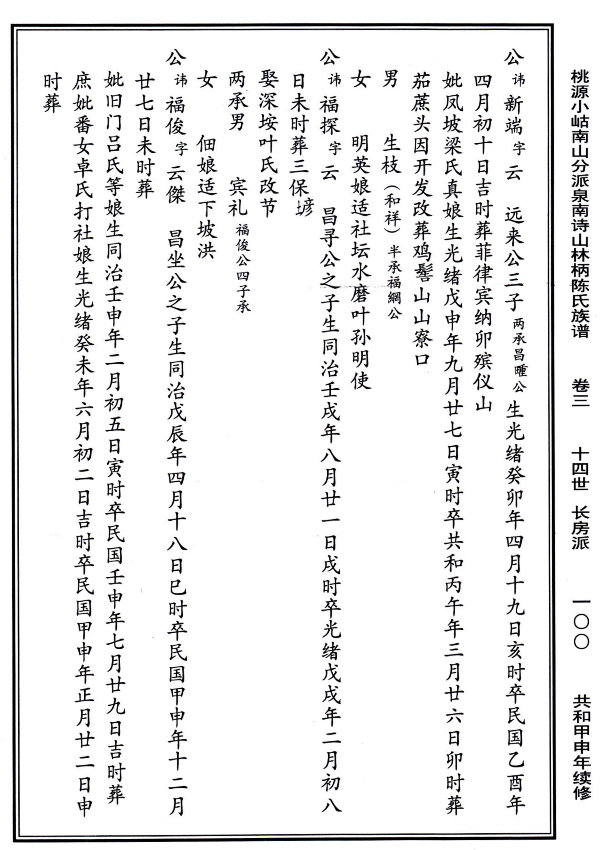 桃源小岵南山分派泉南诗山林柄陈氏族谱 卷三 十四世 长房派 一〇〇 共和甲申年续修
公讳新端字云 远来公三子两承昌暶公生光绪癸卯年四月十九日亥时卒民国乙酉年
四月初十日吉时葬菲律宾纳卯殡仪山
妣凤坡梁氏真娘生光绪戊申年九月廿七日寅时卒共和丙午年三月廿六日卯时葬
茄蔗头因开发改葬鸡髻山山寮口
男 生枝（和祥）半承福綢公
女 明英娘适社坛水磨叶孙明使
公讳福探字云 昌寻公之子生同治壬戌年八月廿一日戌时卒光绪戊戌年二月初八
日未时葬三保𡎚
娶深垵叶氏改节
两承男 宾礼福俊公四子承
女 佃娘适下坡洪
公讳福俊字云傑 昌坐公之子生同治戊辰年四月十八日巳时卒民国甲申年十二月
廿七日未时葬
妣旧门吕氏等娘生同治壬申年二月初五日寅时卒民国壬申年七月廿九日吉时葬
庶妣番女卓氏打社娘生光绪癸未年六月初二日吉时卒民国甲申年正月廿二日申
时葬